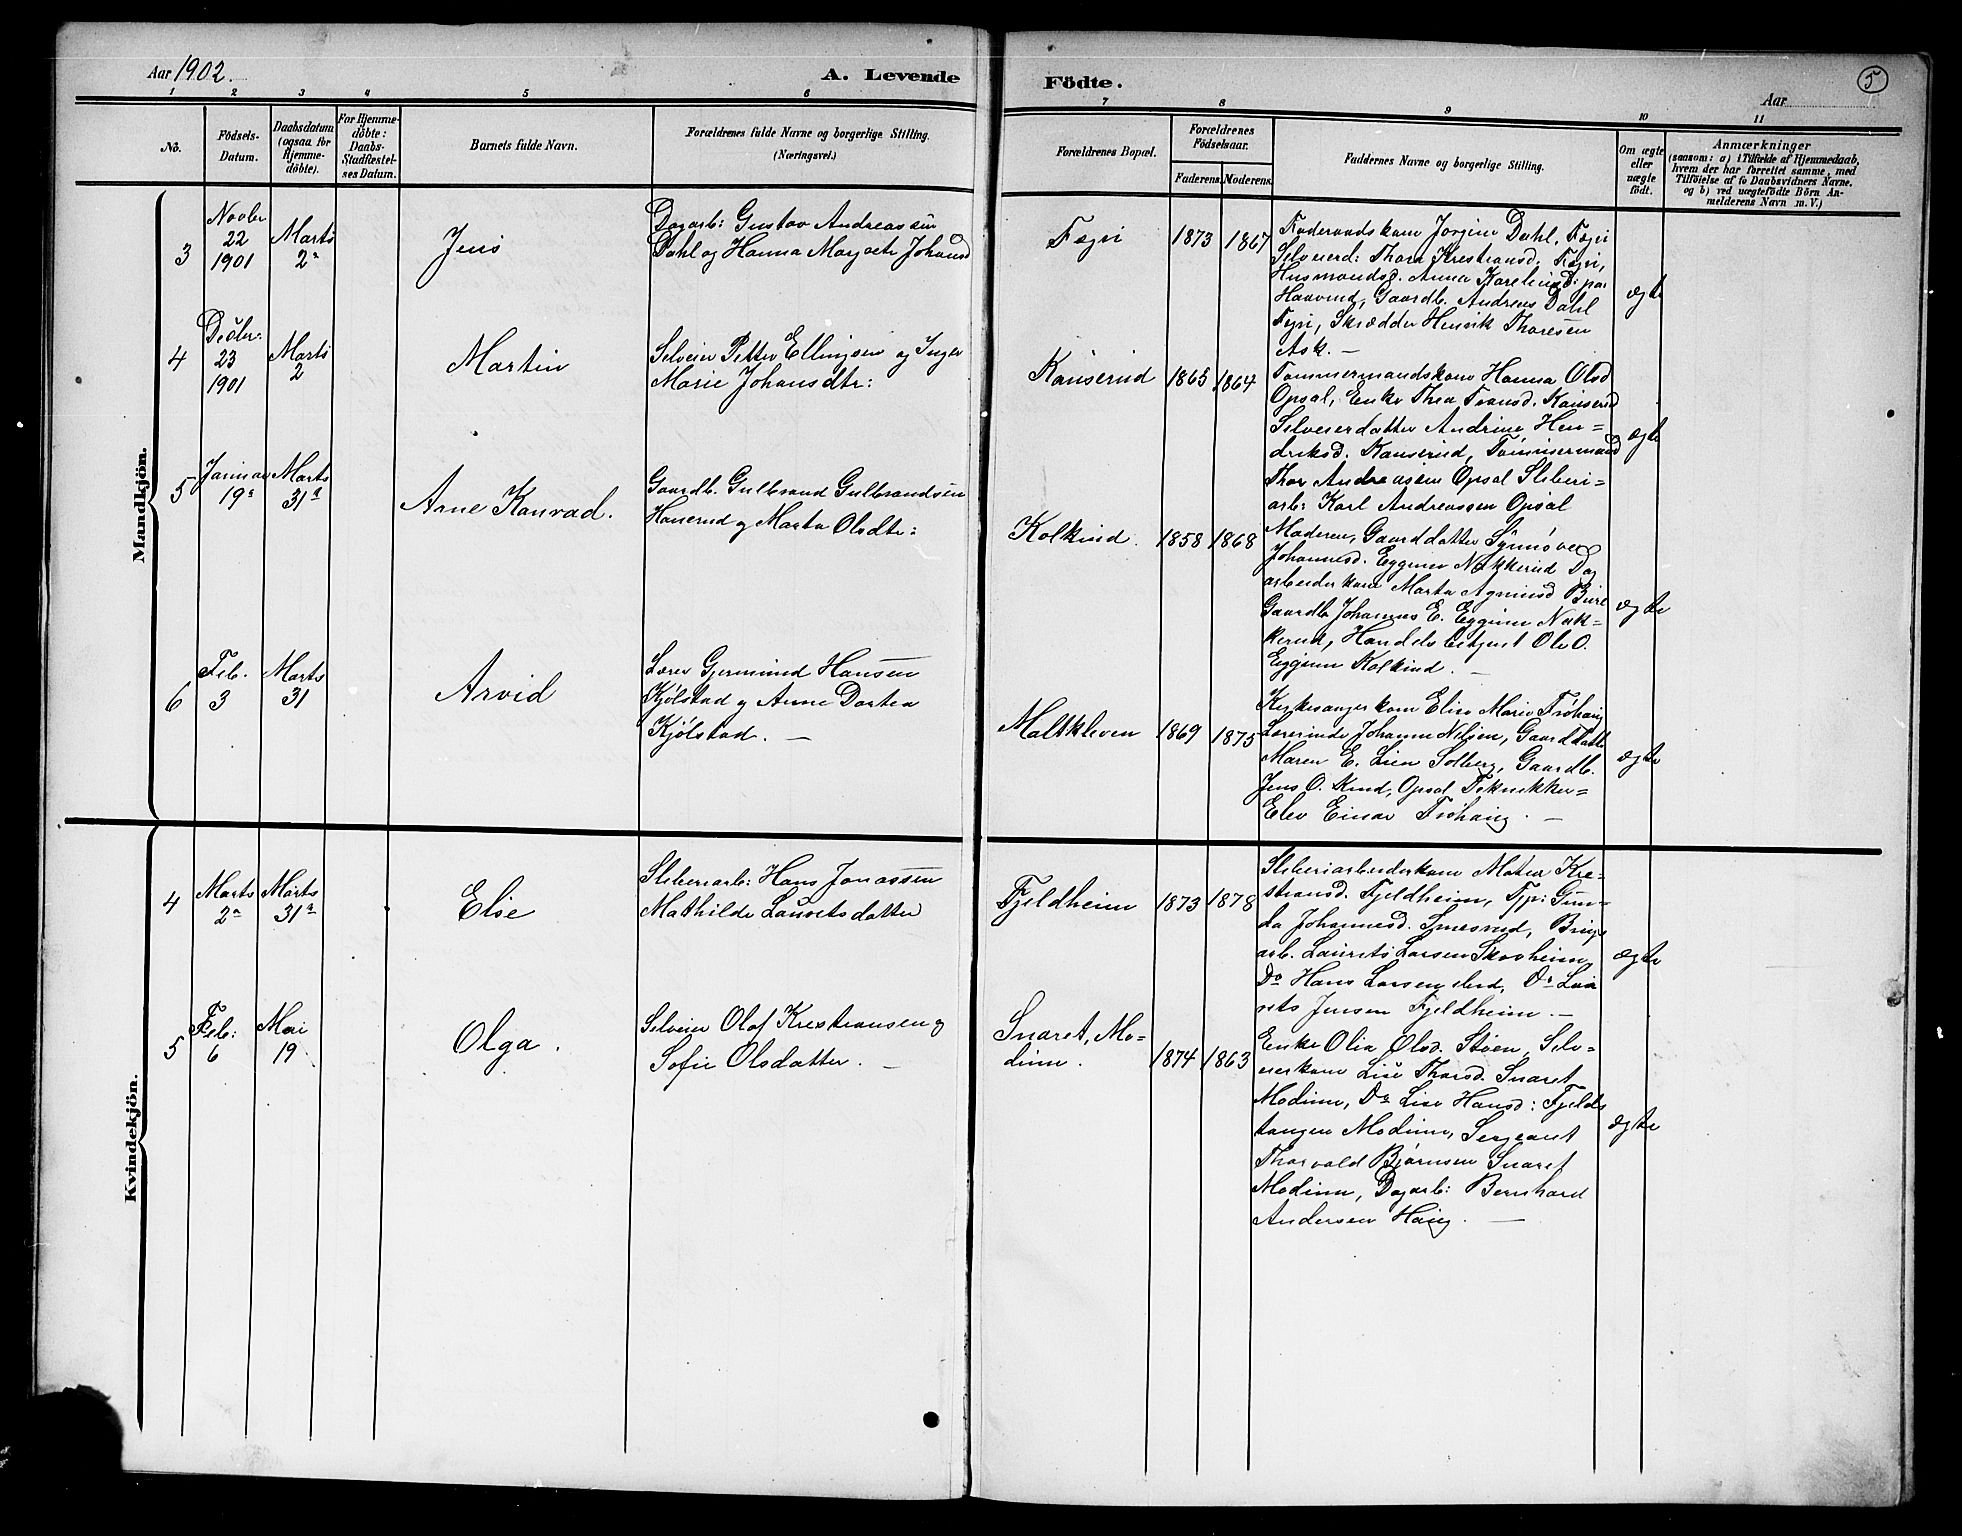 Aar 1902.
A. Levende Födte.
Aar
5
1 2 3 4 5 6 7 8 9 10 11
Nô.
Födsels-
Datum.
Daabsdatum
(ogsaa for
Hjemme-
döbte).
For Hjemme-
döbte:
Daabs-
Stadfæstel-
ses Datum.
Barnets fulde Navn.
Forældrenes fulde Navne og borgerlige Stilling.
(Næringsvei.)
Forældrenes Bopæl.
Forældrenes
Födselsaar.
Faderens. Moderens.
Faddernes Navne og borgerlige Stilling.
Om ægte
eller
uægte
födt.
Anmærkninger
(saasom: a) i Tilfælde af Hjemmedaab,
hvem der har forrettet samme, med
Tilföielse af to Daabsvidners Navne,
og b) ved uægtefödte Börn An-
melderens Navn m. V.)
Mandkjön.
3
Novbr
22
1901
Marts
2
Jens
Dagarb: Gustav Andreassen
Dahl og Hanna Margete Johansd
Fægri
1873
1867
Føderaadskone Jørgine Dahl, Fægri
Selveierd: Thora Krestiansd. Fægri,
Husmandsd. Anna Karelinsd: paa
Haavrud, Gaardb. Andreas Dahl
Fægri, Skrædder Henrik Thoresen
Ask. —
ægte
4
Decbr.
23
1901
Marts
2
Martin
Selveier Petter Ellingsen og Inger
Marie Johansdtr:
Kanserud
1865
1864
Tømmermandskone Hanna Olsd
Opsal, Enke Thea Iversd. Kanserud
Selveierdatter Andrine Hen=
driksd. Kanserud, Tømmermand
Thor Andreasen Opsal Sliberi=
arb: Karl Andreassen Opsal
ægte
5
Januar
19
Marts
31
Arne Konrad.
Gaardb. Gulbrand Gulbrandsen
Hanerud og Marta Olsdtr:
Kolkind.
1858
1868
Moderen, Gaarddatter Synnøve
Johannesd. Eggum Nakkerud Dag
arbeiderkone Marta Agmusd Bure
Gaardb. Johannes E. Eggum Nak=
kerud, Handelsbetjent Ole O.
Eggum Kolkind. —
ægte
6
Feb.
3
Marts
31
Arvid
Lærer Gjermund Hansen
Kjølstad og Anne Dortea
Kjølstad. —
Maltkleven
1869
1875
Kirkesangerkone Elise Marie Frøhaug
Lærerinde Johanne Nilsen, Gaarddatter
Maren E. Lien Solberg, Gaardb.
Jens O. Rud, Opsal Teknikker=
Elev Einar Frøhaug. —
ægte
Kvindekjön.
4
Marts
2
Marts
31
Else
Sliberiarb: Hans Jonassen
Mathilde Lauritsdatter
Fjeldheim
1873
1878
Sliberiarbeiderkone Matea Kre-
stiansd. Fjeldheim, Tjp: Gun=
da Johannesd. Smesrud, Brugs
arb. Laurits Larsen Skovheim,
Do Hans Larsen ibid, Do Lau
rits Jensen Fjeldheim. —
ægte
5
Feb:
6
Mai
19
Olga.
Selveier Olaf Krestiansen og
Sofie Olsdatter. —
Snaret, Mo-
dum.
1874
1863
Enke Olia Olsd. Støen, Selv=
eierkone Lise Thorsd. Snaret
Modum, Do Lise Hansd: Fjelds
tangen Modum, Sergeant
Thorvald Bjørnsen Snaret
Modum, Dagarb: Bernhard
Andersen Haug. —
ægte